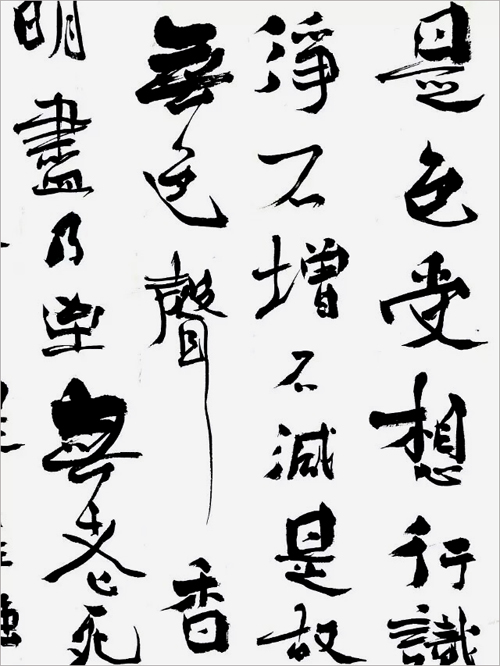 是色受想行識
淨不增不減是故
無色聲香
明盡乃至無老死